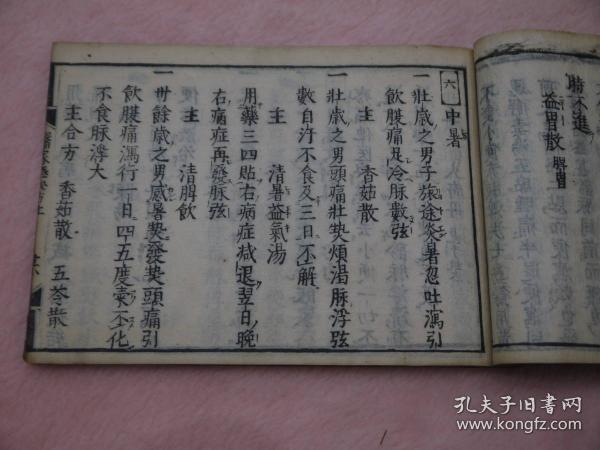 時不進
益胃散 脾胃
六 中暑
一 壯歳之男子旅途炎暑忽吐瀉引
飲腹痛足冷脉數弦
主 香茹散
一 壯歳之男頭痛壯㷍煩渇脉浮弦
數自汗不食及三日不解
主 清暑益氣湯
用藥三四貼右病症減退翌日晩
右痛症再發脉弦
主 清脾飲
一 丗餘歳之男感暑㷍發㷍頭痛引
飲腹痛瀉行一日四五度槖不化
不食脉浮大
主合方 香茹散 五苓散
孔夫子旧書网
www.kongfz.com